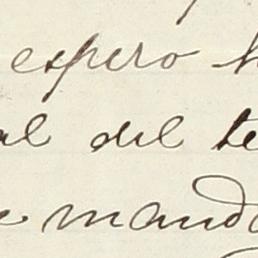 espero
al del te
e mando